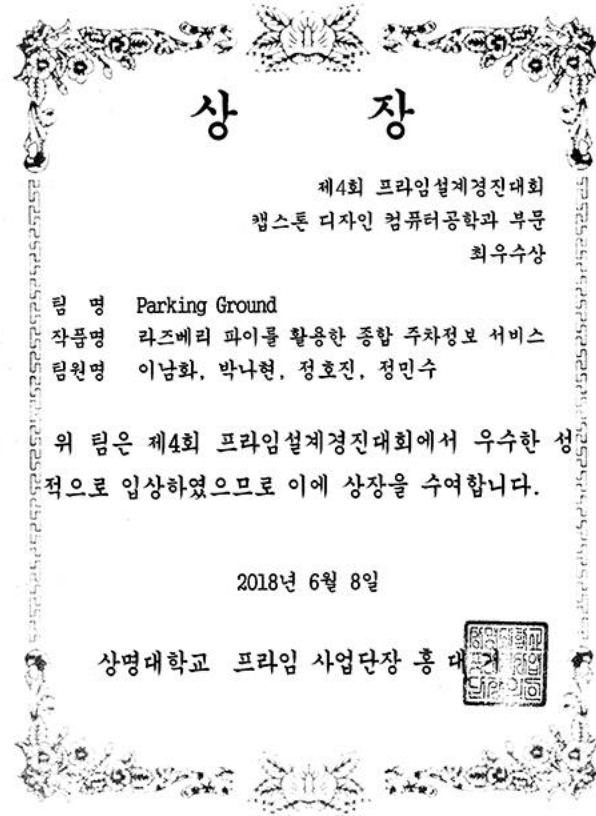 상 장
제4회 프라임설계경진대회
캡스톤 디자인 컴퓨터공학과 부문
최우수상
팀 명 Parking Ground
작품명 라즈베리 파이를 활용한 종합 주차정보 서비스
팀원명 이남화, 박나현, 정호진, 정민수
위 팀은 제4회 프라임설계경진대회에서 우수한 성
적으로 입상하였으므로 이에 상장을 수여합니다.
2018년 6월 8일
상명대학교 프라임 사업단장 홍 대